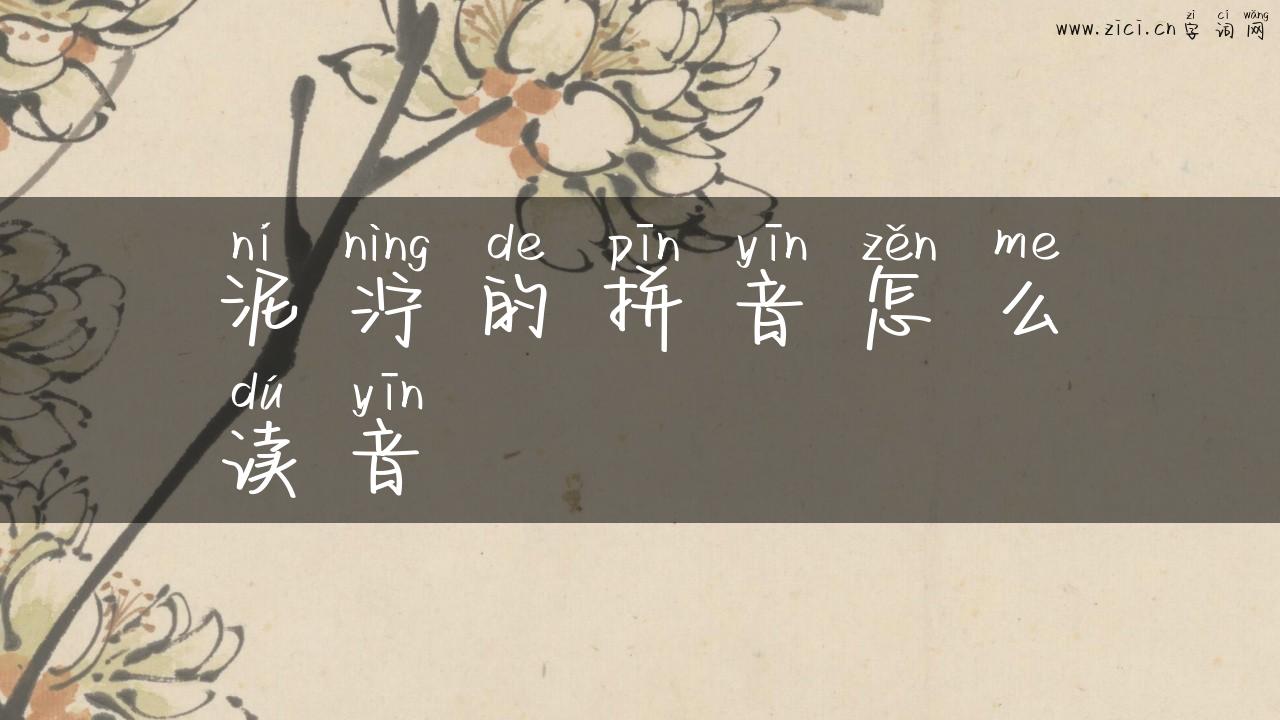 zì cí wǎng
www.zici.cn 字词网
ní nìng de pīn yīn zěn me
泥泞的拼音怎么
dú yīn
读音